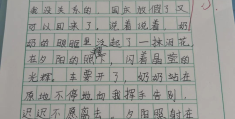 我没关系的，国庆放假了又
可以回来了，说着说着，奶
奶的眼眶里泛起了一抹泪花，
在夕阳的照耀下，闪着晶莹的
光辉，车要开了，奶奶站在
原地不停地向我挥手告别，
迟迟不愿离去，夕阳照射在